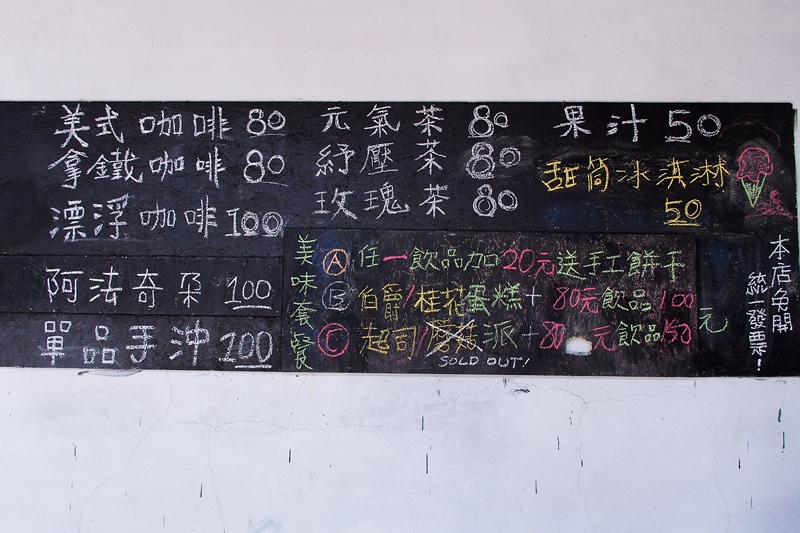 美式咖啡 80
拿鐵咖啡 80
漂浮咖啡 100
阿法奇朶 100
單品手沖 200
元氣茶 80
紓壓茶 80
玫瑰茶 80
果汁 50
甜筒冰淇淋
50
美味套餐
Ⓐ 任一飲品加20元送手工餅干
Ⓑ 伯爵/桂花蛋糕+80元飲品100
Ⓒ 起司/ 派+80元飲品150
元
SOLD OUT!
本店免開
統一發票!